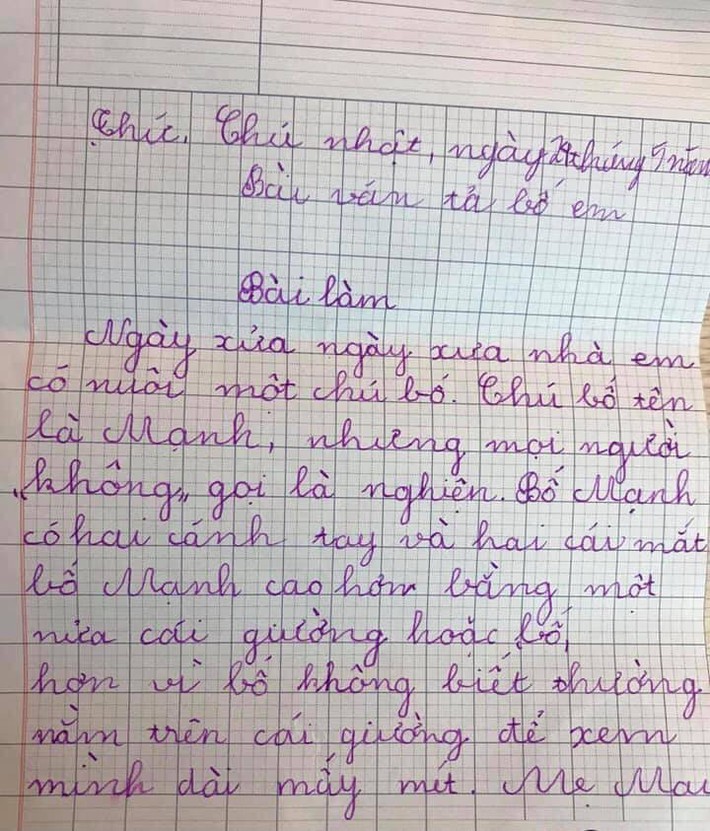 Thức, Chủ nhật, ngày 24 tháng 5 năm
Bài văn tả bố em
Bài làm
Ngày xửa ngày xưa nhà em
có nuôi một chú bố. Chú bố tên
là Mạnh, nhưng mọi người
"không" gọi là nghiện. Bố Mạnh
có hai cánh tay và hai cái mắt
bố Mạnh cao hơn bằng một
nửa cái giường hoặc bố
hơn vì bố không biết thường
nằm trên cái giường để xem
mình dài mấy mét. Mẹ Mai